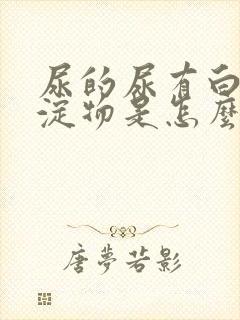 尿的尿有白
淀物是怎麼
唐夢若影